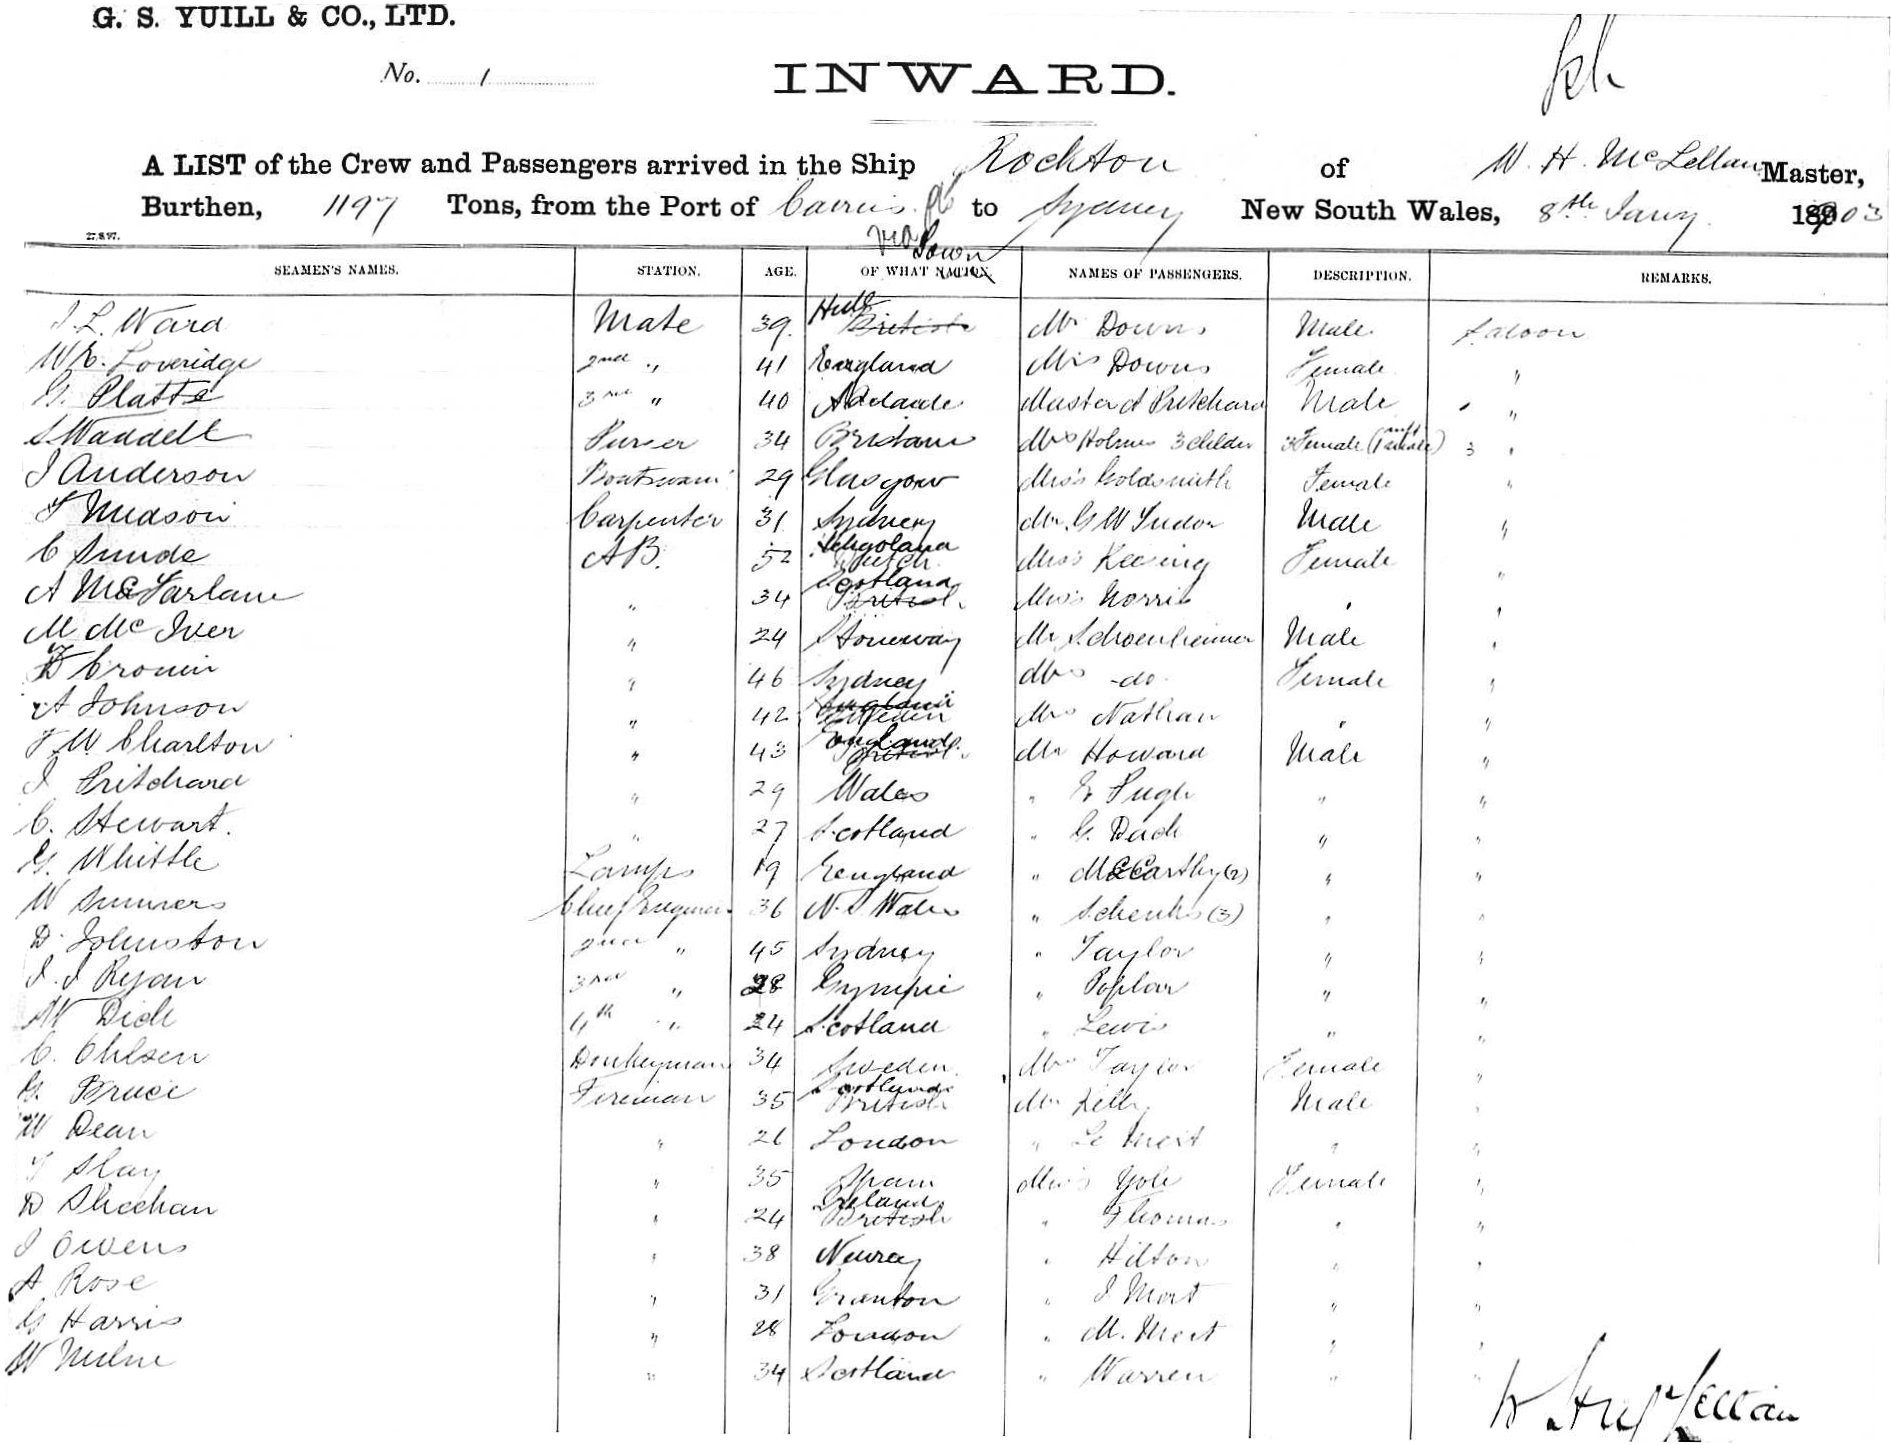 G. S. YUILL & CO., LTD.
No. 1
INWARD.
A LIST of the Crew and Passengers arrived in the Ship Rockton of W. H. McLellan Master,
Burthen, 1197 Tons, from the Port of Cairns to Sydney New South Wales, 8th Jany. 1903
27.8.97. via Town
SEAMEN'S NAMES. STATION. AGE. OF WHAT NATION. NAMES OF PASSENGERS. DESCRIPTION. REMARKS.
J. L. Ward Mate 39 Hull British Mr Downs Male Saloon
W E. Loveridge 2nd " 41 England Mrs Downs Female "
G. Platte 3rd " 40 Adelaide Master A Pritchard Male "
S Waddell Purser 34 Brisbane Mrs Holmes 3 childer 3 Female 3 "
J Anderson Boatswain 29 Glasgow Miss Goldsmith Female "
T Hudson Carpenter 31 Sydney Mr G W Tudor Male "
C Sunde AB. 52 Miss Keesing Female "
A McFarlane " 34 Scotland British Miss Norris " "
M McIver " 24 Stoneway Mr Schoenheimer Male "
Cronin " 46 Sydney Mrs do Female "
A Johnson " 42 Sweden Mrs Nathan " "
T W. Charlton " 43 England British Mr Howard Male "
J Pritchard " 29 Wales " E Pugh " "
C. Stewart. " 27 Scotland " G. Dack " "
G. Whittle Lamps 19 England " McCarthy (2) " "
W Summers Chief Engineer 36 N. S. Wales " Schenks (3) " "
D. Johnston 2nd " 45 Sydney " Taylor " "
J. J Ryan 3rd " 28 Gympie " Poplar " "
W Dick 4th " 24 Scotland " Lewis " "
C. Ohlsen Donkeyman 34 Sweden. Mrs Taylor Female "
G. Bruce Fireman 35 Scotland British Mr Kelly Male "
W Dean " 26 London " Le Mert " "
T Slay " 35 Spain Miss Yole Female "
D Sheehan " 24 Ireland British " Thomas " "
J Owens " 38 Newray " Hilton " "
A Rose " 31 Granton " J Mort " "
G Harris " 28 London " M. Mort " "
W Milne " 34 Scotland " Warren " "
W H McLellan